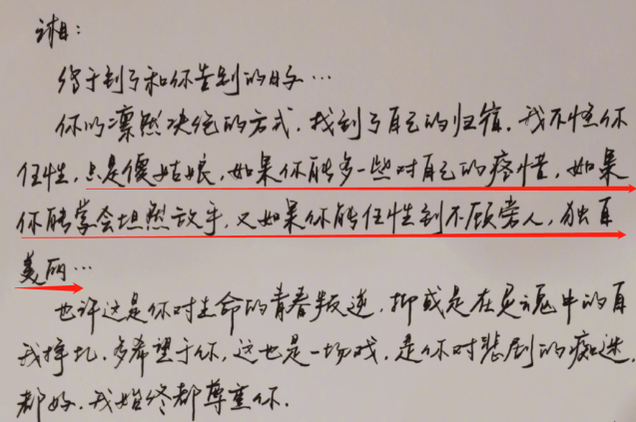 湘：
终于到了和你告别的日子…
你以凛然决绝的方式，找到了自己的归宿。我不怪你
任性，只是傻姑娘，如果你能多一些对自己的疼惜，如果
你能学会坦然放手，又如果你能任性到不顾旁人，独自
美丽…
也许这是你对生命的青春叛逆，抑或是在灵魂中的自
我挣扎，多希望于你，这也是一场戏，是你对悲剧的痴迷，
都好，我始终都尊重你．